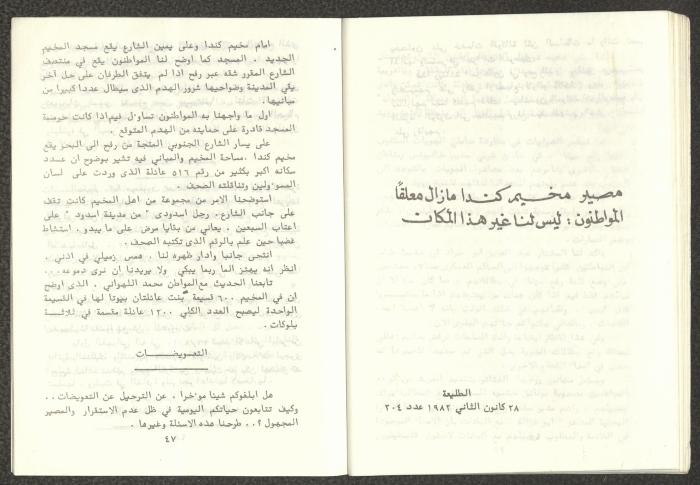 مصير مخيم كندا مازال معلقًا
المواطنون : ليس لنا غير هذا المكان
الطليعة
٢٨ كانون الثاني ١٩٨٢ عدد ٢٠٤
امام مخيم كندا وعلى يمين الشارع يقع مسجد المخيم
الجديد . المسجد كما اوضح لنا المواطنون يقع في منتصف
الشارع المقرر شقه عبر رفح اذا لم يتفق الطرفان على حل آخر
يقي المدينة وضواحيها شرور الهدم الذى سيطال عددا كبيرا من
مبانيها.
اول ما واجهنا به المواطنون تساوءل فيم اذا كانت حرمة
المسجد قادرة على حمايته من الهدم المتوقع .
على يسار الشارع الجنوبي المتجة من رفح الى البحر يقع
مخيم كندا .مساحة المخيم والمباني فيه تشير بوضوح ان عدد
سكانه اكبر بكثير من رقم ٥١٦ عائلة الذى وردت على لسان
المسوءولين وتناقلته الصحف .
استوضحنا الامر من مجموعة من اهل المخيم كانت تقف
على جانب الشارع . رجل اسدودى " من مدينة اسدود " على
اعتاب السبعين . يعاني من بقايا مرض على ما يبدو . استشاط
غضبا حين علم بالرقم الذى تكتبه الصحف .
انتحى جانبا وادار ظهره لنا . همس زميلي في اذني .
انظر انه يهتز الما ربما يبكي ولا يريدنا ان نرى دموعه...
تابعنا الحديث مع المواطن محمد اللهواني . الذى اوضح
ان في المخيم ٦٠٠ قسيمة بنت عائلتان بيوتا لها في القسيمة
الواحدة ليصبح العدد الكلي ١٢٠٠ عائلة مقسمة في ثلاثة
بلوكات .
التعويضات
هل ابلغوكم شيئا موءخرا . عن الترحيل عن التعويضات ..
وكيف تتابعون حياتكم اليومية في ظل عدم الاستقرار والمصير
المجهول ؟.. طرحنا هذه الاسئلة وغيرها .
٤٧